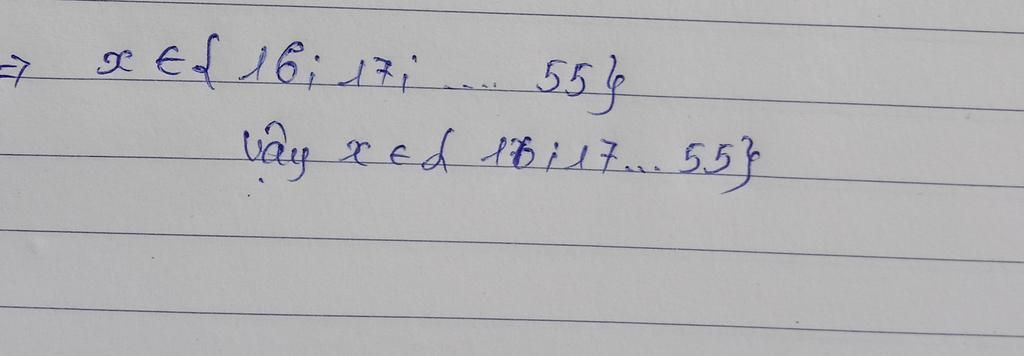 => x ∈ { 16; 17; .... 55}
Vậy x ∈ { 16; 17... 55}